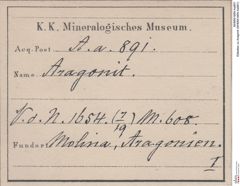 K. K. Mineralogisches Museum.
Acq. Post A. a. 891.
Name Aragonit.
V. d. N. 1654. (7/19) M. 608.
Fundort Molina, Aragonien.
I